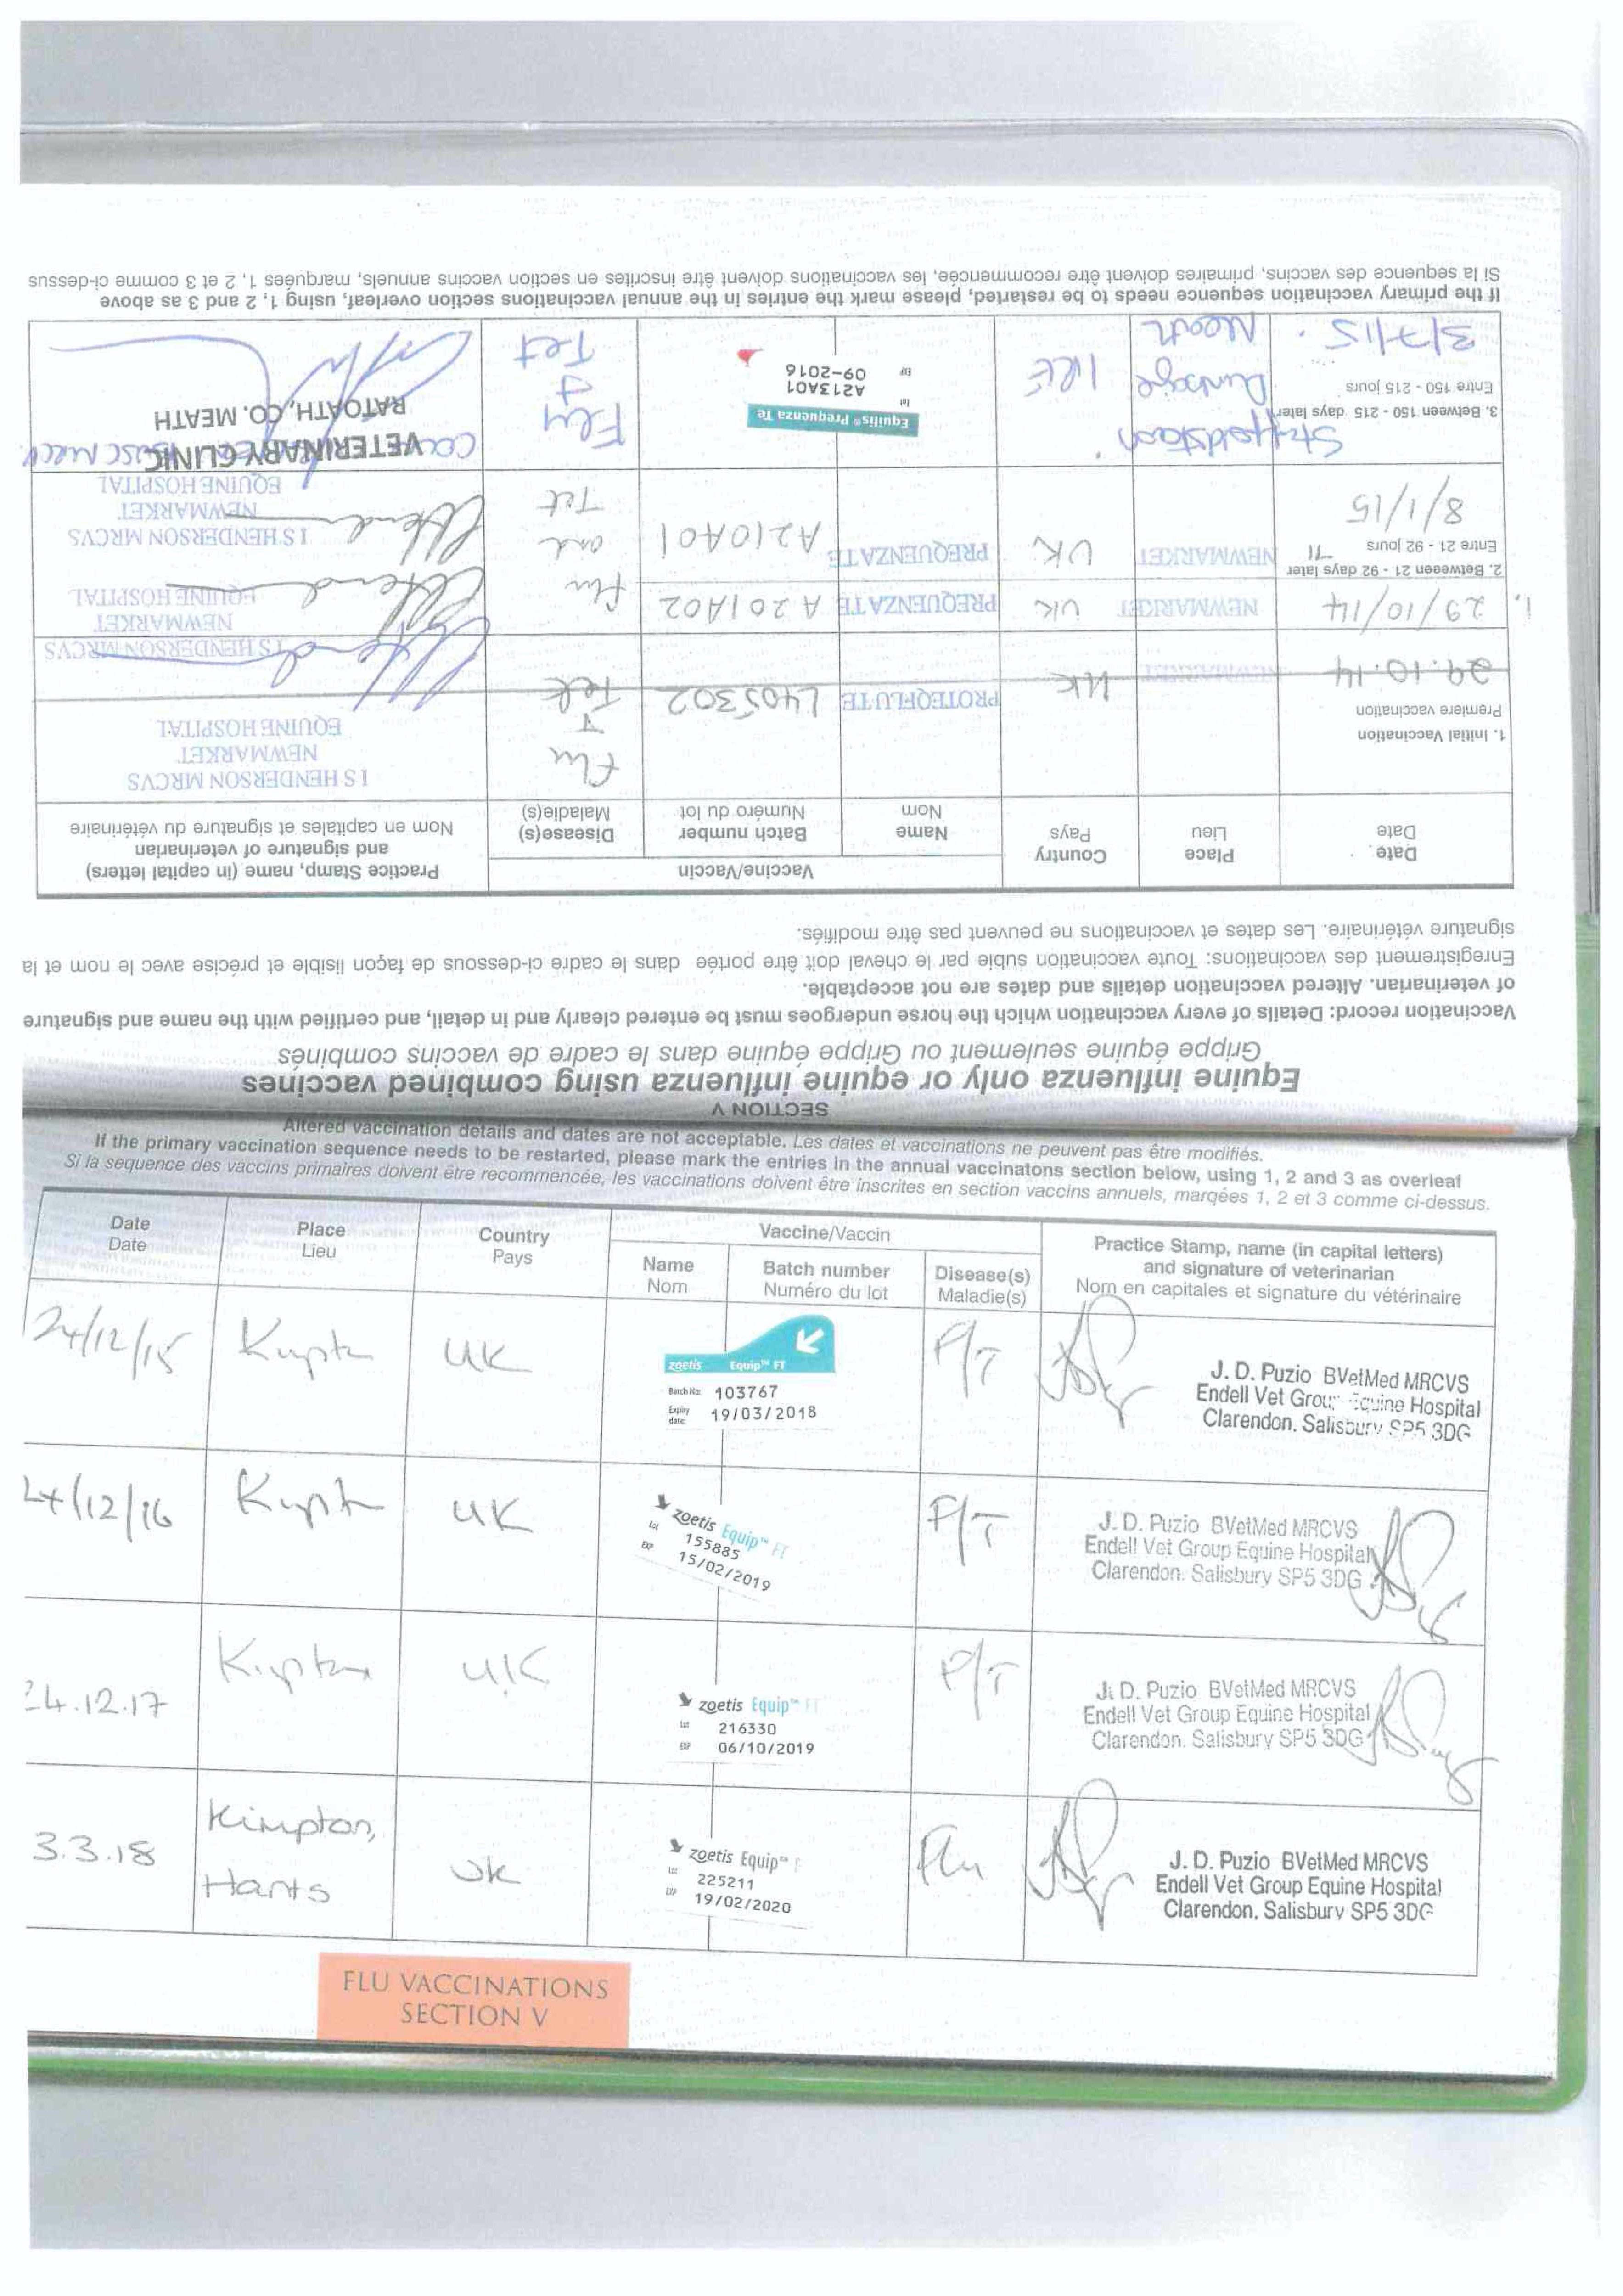 SECTION V
Equine influenza only or equine influenza using combined vaccines
Grippe équine seulement ou Grippe équine dans le cadre de vaccins combinés
Vaccination record: Details of every vaccination which the horse undergoes must be entered clearly and in detail, and certified with the name and signature
of veterinarian. Altered vaccination details and dates are not acceptable.
Enregistrement des vaccinations: Toute vaccination subie par le cheval doit être portée dans le cadre ci-dessous de façon lisible et précise avec le nom et la
signature vétérinaire. Les dates et vaccinations ne peuvent pas être modifiés.
Date
Date
Place
Lieu
Country
Pays
Vaccine/Vaccin
Name
Nom
Batch number
Numéro du lot
Disease(s)
Maladie(s)
Practice Stamp, name (in capital letters)
and signature of veterinarian
Nom en capitales et signature du vétérinaire
1. Initial Vaccination
Premiere vaccination
29.10.14
NEWMARKET
UK
PROTEQFLUTE
L405302
Flu
+
Tet
I S HENDERSON MRCVS
NEWMARKET
EQUINE HOSPITAL
1.
29/10/14
NEWMARKET
UK
PREQUENZATE
A201A02
Flu
and
Tet
I S HENDERSON MRCVS
NEWMARKET
EQUINE HOSPITAL
2. Between 21 - 92 days later
Entre 21 - 92 jours
8/1/15
NEWMARKET
UK
PREQUENZATE
A210A01
I S HENDERSON MRCVS
NEWMARKET
EQUINE HOSPITAL
3. Between 150 - 215 days later
Entre 150 - 215 jours
3/7/15
Meath
IRE
Equilis® Prequenza Te
lot
A213A01
EXP
09-2016
Flu
+
Tet
VETERINARY CLINIC
RATOATH, CO. MEATH
If the primary vaccination sequence needs to be restarted, please mark the entries in the annual vaccinations section overleaf, using 1, 2 and 3 as above
Si la sequence des vaccins, primaires doivent être recommencée, les vaccinations doivent être inscrites en section vaccins annuels, marquées 1, 2 et 3 comme ci-dessus
Altered vaccination details and dates are not acceptable. Les dates et vaccinations ne peuvent pas être modifiés.
If the primary vaccination sequence needs to be restarted, please mark the entries in the annual vaccinatons section below, using 1, 2 and 3 as overleaf
Si la sequence des vaccins primaires doivent être recommencée, les vaccinations doivent être inscrites en section vaccins annuels, marqées 1, 2 et 3 comme ci-dessus.
Date
Date
Place
Lieu
Country
Pays
Vaccine/Vaccin
Name
Nom
Batch number
Numéro du lot
Disease(s)
Maladie(s)
Practice Stamp, name (in capital letters)
and signature of veterinarian
Nom en capitales et signature du vétérinaire
24/12/15
UK
zoetis Equip™ FT
Batch No: 103767
Expiry date: 19/03/2018
F/T
J. D. Puzio BVetMed MRCVS
Endell Vet Group Equine Hospital
Clarendon. Salisbury SP5 3DG
24/12/16
UK
zoetis Equip™ FT
lot 155885
EXP 15/02/2019
F/T
J. D. Puzio BVetMed MRCVS
Endell Vet Group Equine Hospital
Clarendon. Salisbury SP5 3DG
24.12.17
UK
zoetis Equip™ FT
lot 216330
EXP 06/10/2019
F/T
J. D. Puzio BVetMed MRCVS
Endell Vet Group Equine Hospital
Clarendon. Salisbury SP5 3DG
3.3.18
Kimpton,
Hants
UK
zoetis Equip™ F
lot 225211
EXP 19/02/2020
Flu
J. D. Puzio BVetMed MRCVS
Endell Vet Group Equine Hospital
Clarendon, Salisbury SP5 3DG
FLU VACCINATIONS
SECTION V